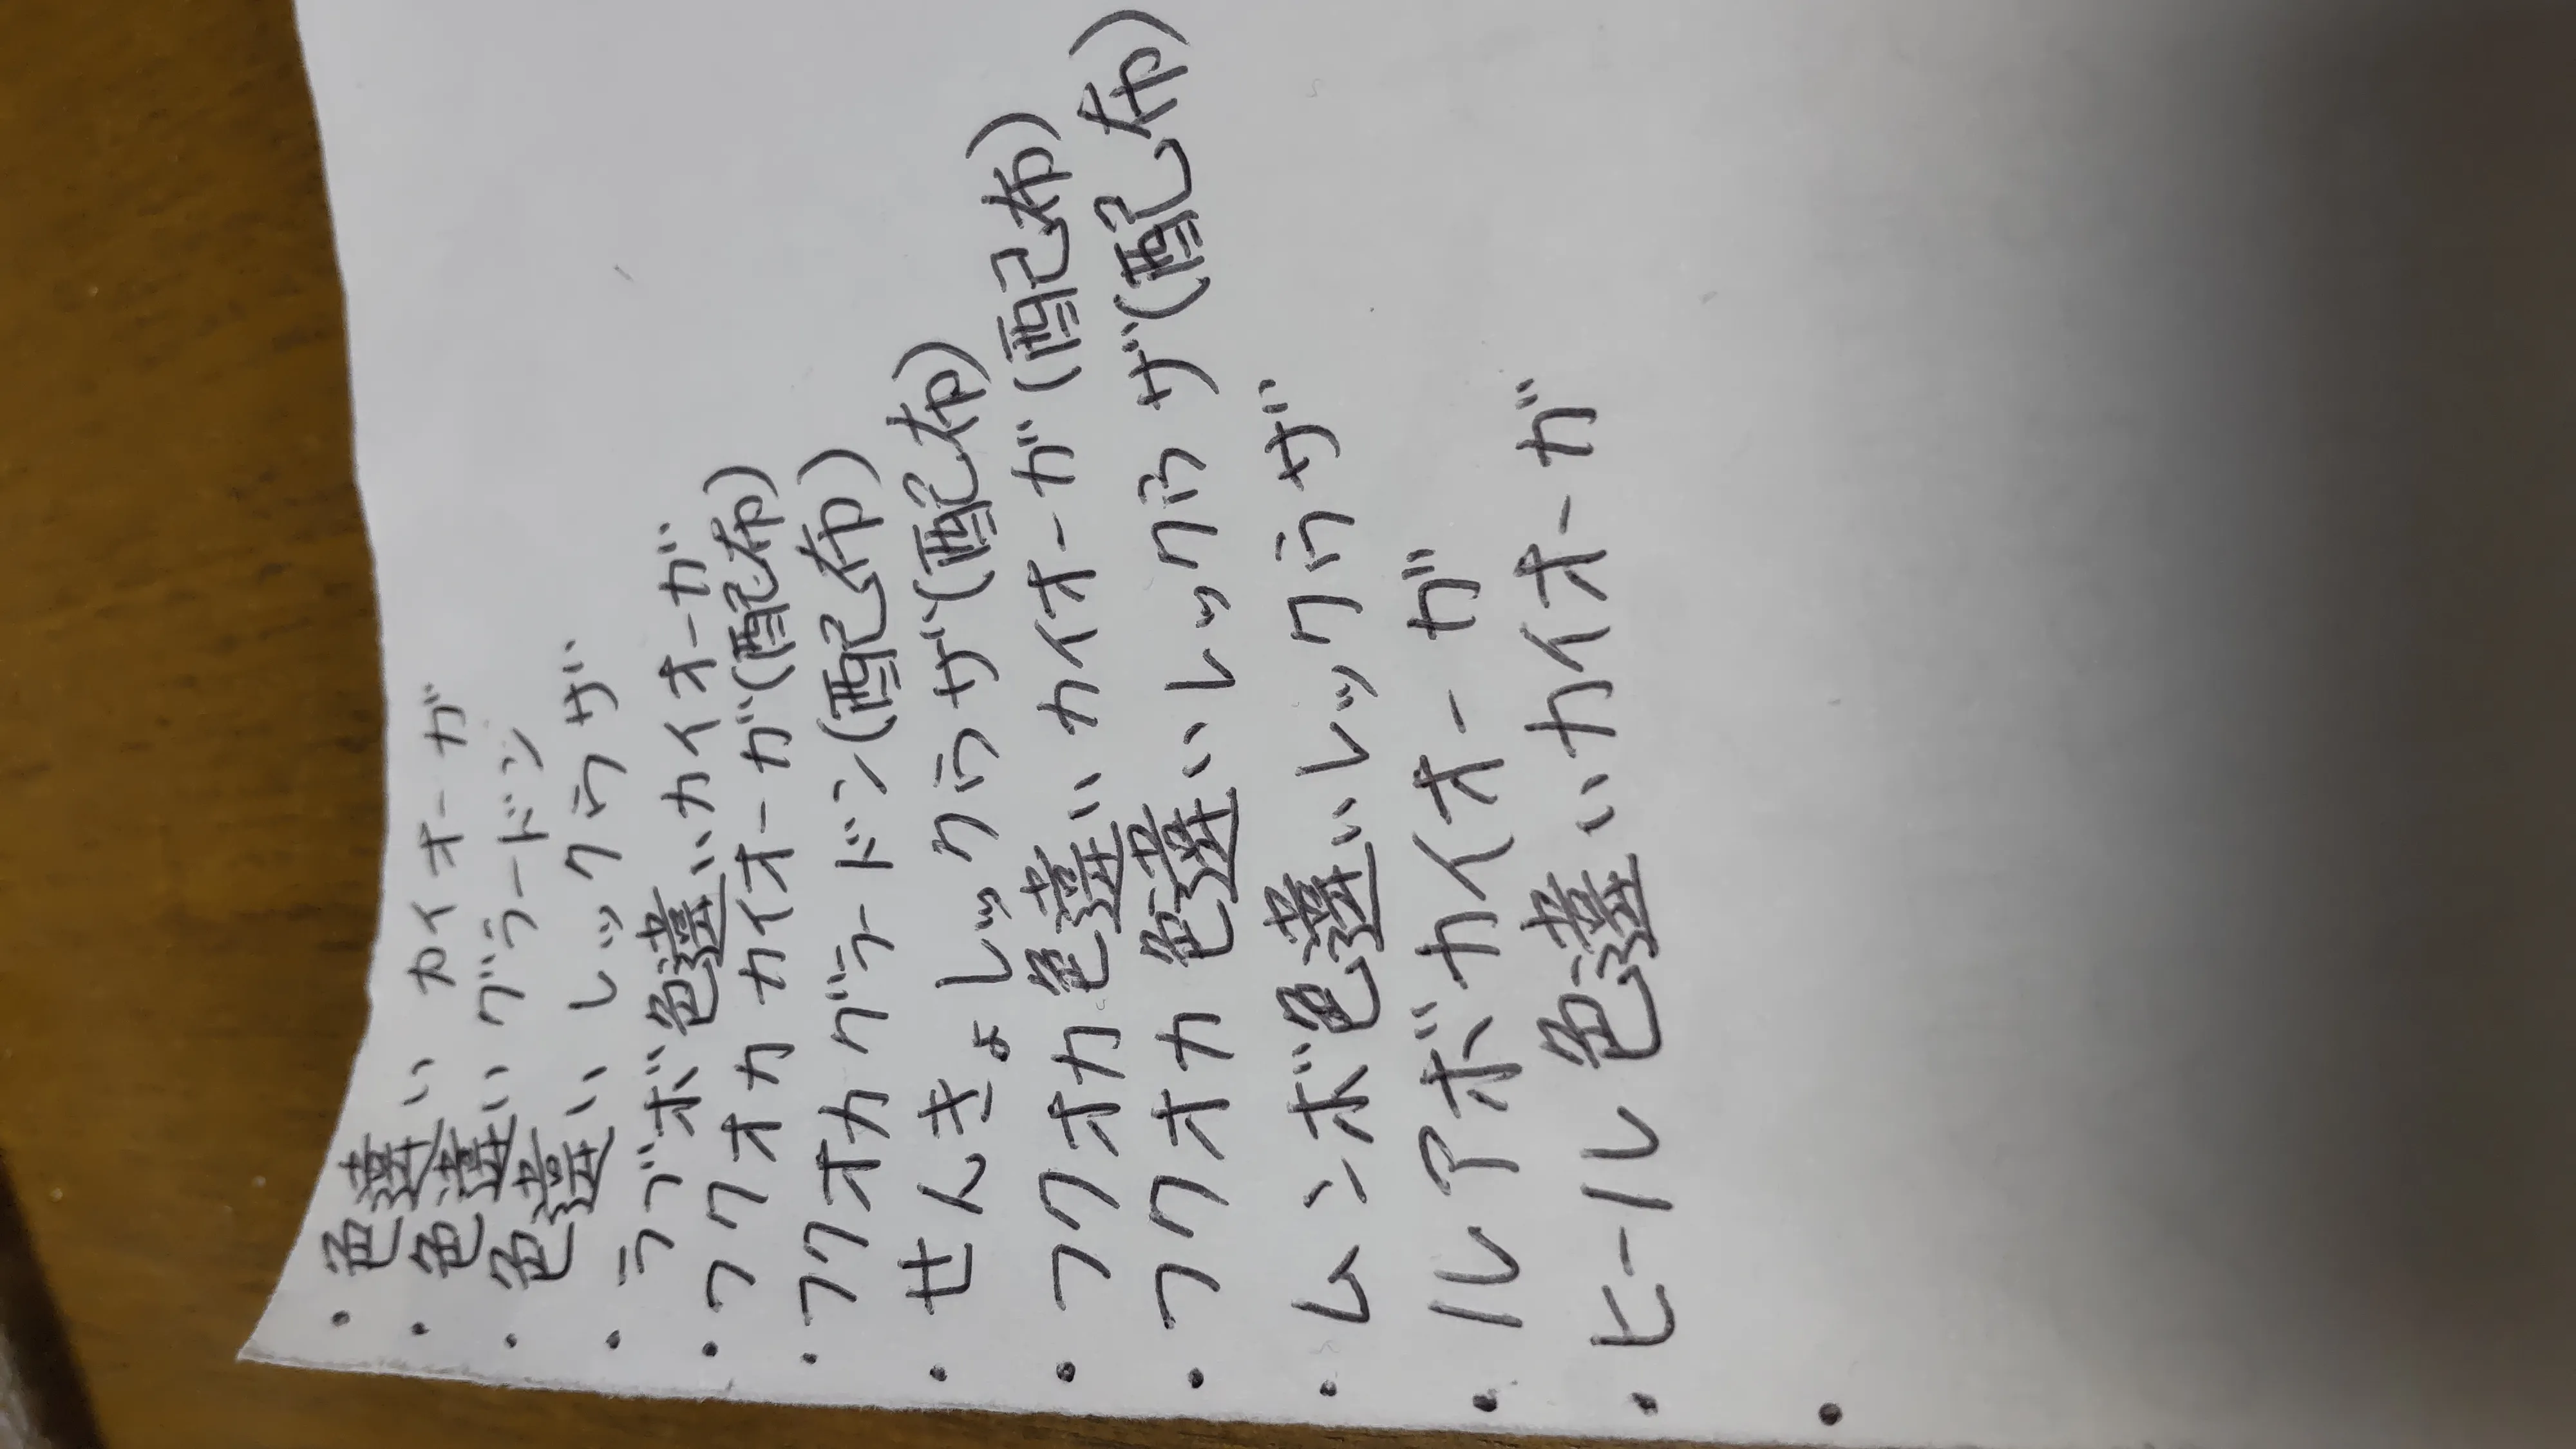 ・色違い カイオーガ
・色違い グラードン
・色違い レックウザ
・ラブボ 色違いカイオーガ
・フクオカ カイオーガ(配布)
・フクオカ グラードン(配布)
・せんきょ レックウザ(配布)
・フクオカ 色違い カイオーガ(配布)
・フクオカ 色違い レックウザ(配布)
・ムンボ 色違い レックウザ
・ルアボ カイオーガ
・ヒール 色違い カイオーガ
・